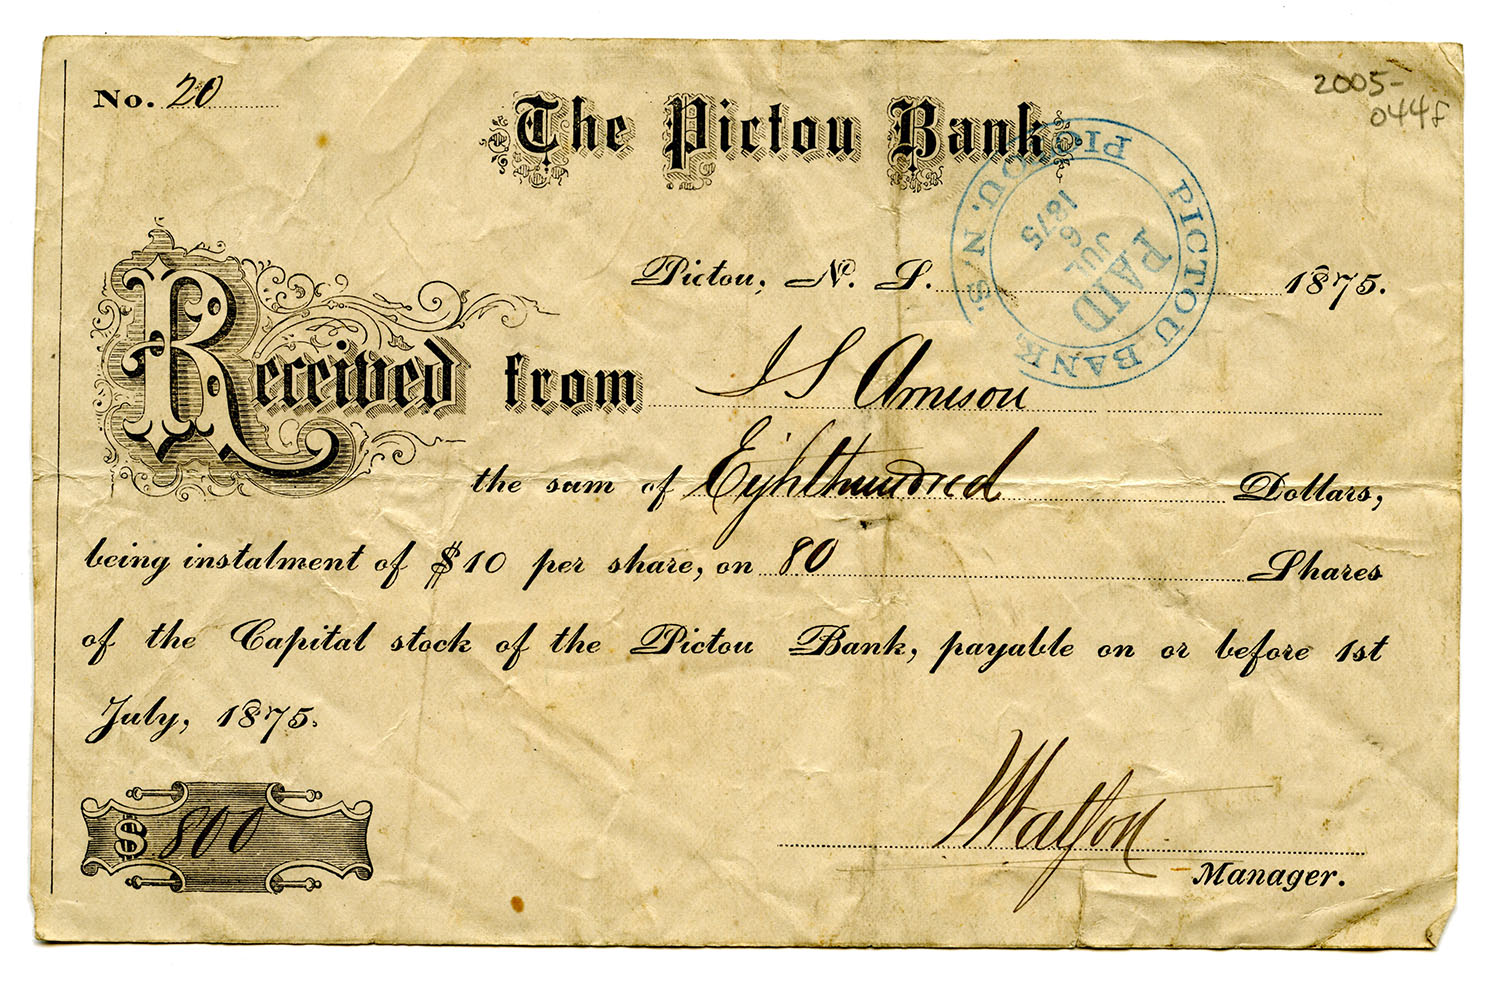 No. 20
2005-
044f
The Pictou Bank
PICTOU BANK. PICTOU. N.S.
PAID
JUL 6
1875
Pictou, N. S. 1875.
Received from J S Arnison
the sum of Eight hundred Dollars,
being instalment of $10 per share, on 80 Shares
of the Capital stock of the Pictou Bank, payable on or before 1st
July, 1875.
$ 800
Watson
Manager.